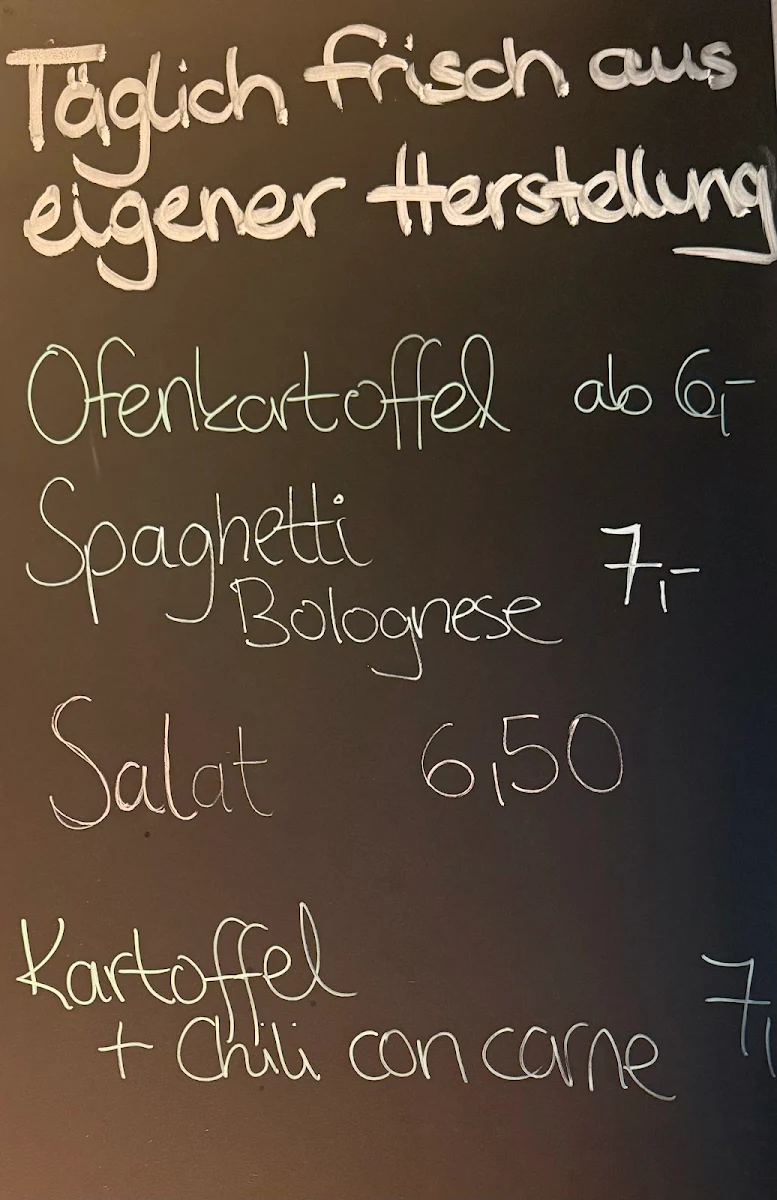 Täglich frisch aus
eigener Herstellung
Ofenkartoffel ab 6,-
Spaghetti
Bolognese 7,-
Salat 6,50
Kartoffel
+ Chili con carne 7,